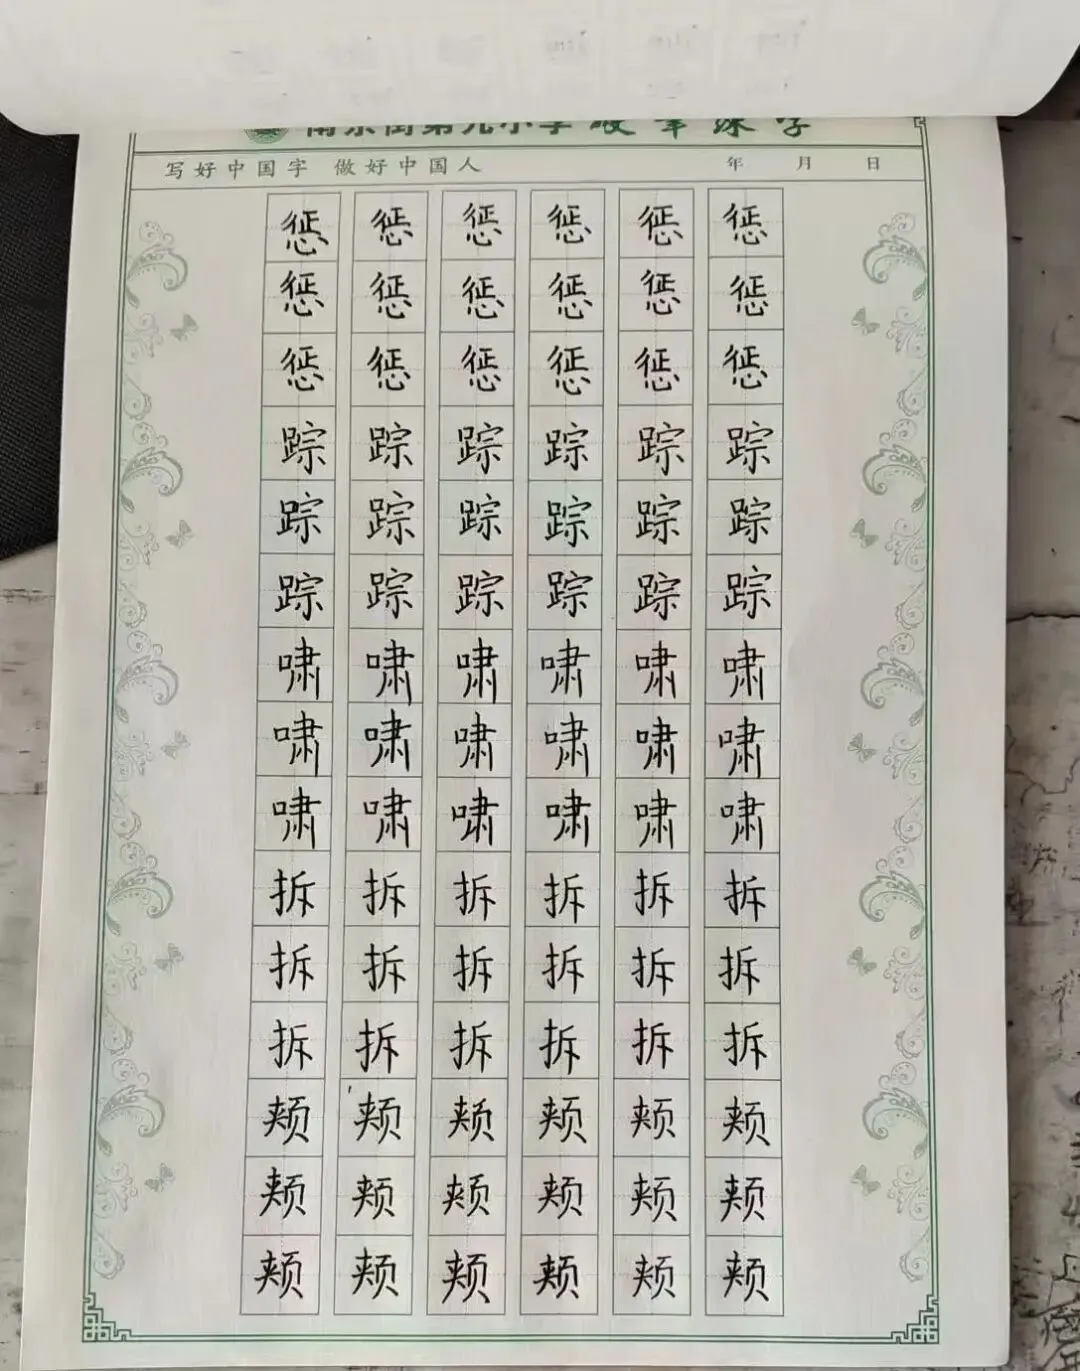 南京街第九小学硬笔练字
写好中国字 做好中国人 年 月 日
惩 惩 惩 惩 惩 惩
惩 惩 惩 惩 惩 惩
惩 惩 惩 惩 惩 惩
踪 踪 踪 踪 踪 踪
踪 踪 踪 踪 踪 踪
踪 踪 踪 踪 踪 踪
啸 啸 啸 啸 啸 啸
啸 啸 啸 啸 啸 啸
啸 啸 啸 啸 啸 啸
拆 拆 拆 拆 拆 拆
拆 拆 拆 拆 拆 拆
拆 拆 拆 拆 拆 拆
颊 颊 颊 颊 颊 颊
颊 颊 颊 颊 颊 颊
颊 颊 颊 颊 颊 颊